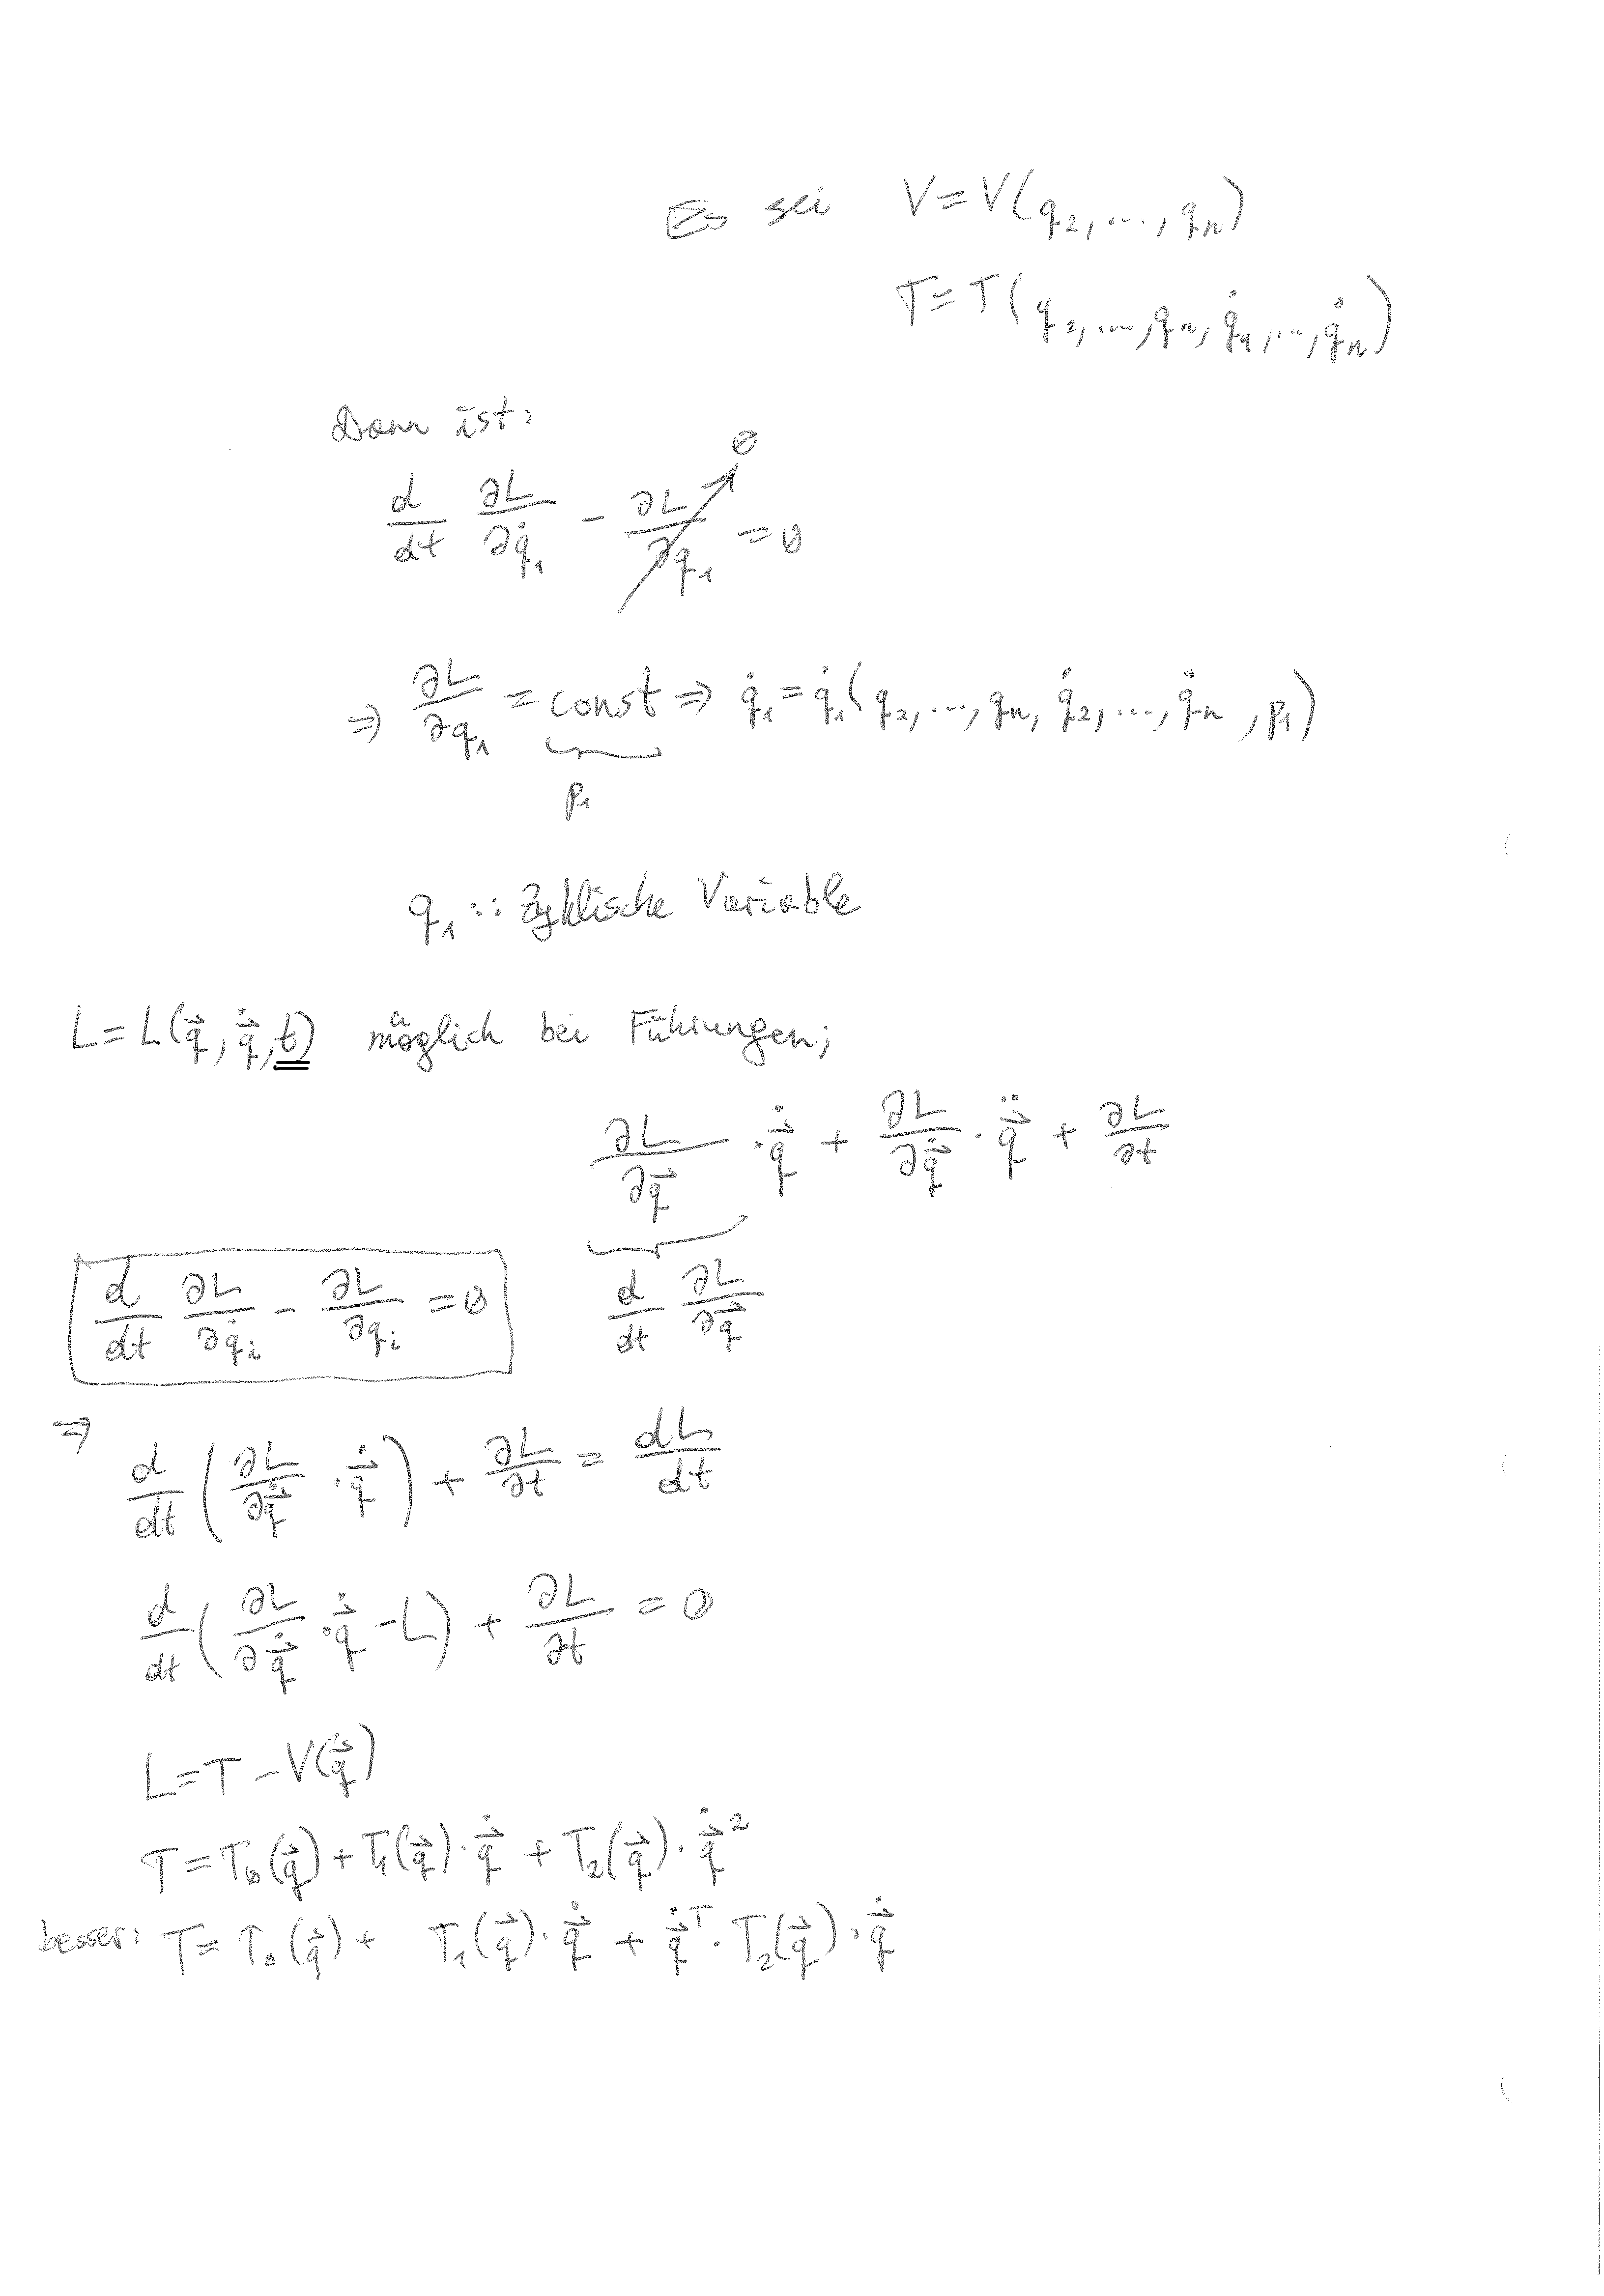 Es sei V = V(q₂, ..., qₙ)
T = T(q₂, ..., qₙ, q̇₁, ..., q̇ₙ)
Dann ist:
d/dt ∂L/∂q̇₁ - ∂L/∂q₁ = 0 (↗ 0)
⇒ ∂L/∂q₁ = const ⇒ q̇₁ = q̇₁(q₂, ..., qₙ, q̇₂, ..., q̇ₙ, p₁)
p₁
q₁ :: Zyklische Variable
L = L(q⃗, q⃗̇, t) möglich bei Führungen;
∂L/∂q⃗ · q⃗̇ + ∂L/∂q⃗̇ · q⃗̈ + ∂L/∂t
d/dt ∂L/∂q⃗̇
d/dt ∂L/∂q̇ᵢ - ∂L/∂qᵢ = 0
⇒
d/dt (∂L/∂q⃗̇ · q⃗̇) + ∂L/∂t = dL/dt
d/dt (∂L/∂q⃗̇ · q⃗̇ - L) + ∂L/∂t = 0
L = T - V(q⃗)
T = T₀(q⃗) + T₁(q⃗) · q⃗̇ + T₂(q⃗) · q⃗̇²
besser: T = T₀(q⃗) + T₁(q⃗) · q⃗̇ + q⃗̇ᵀ · T₂(q⃗) · q⃗̇